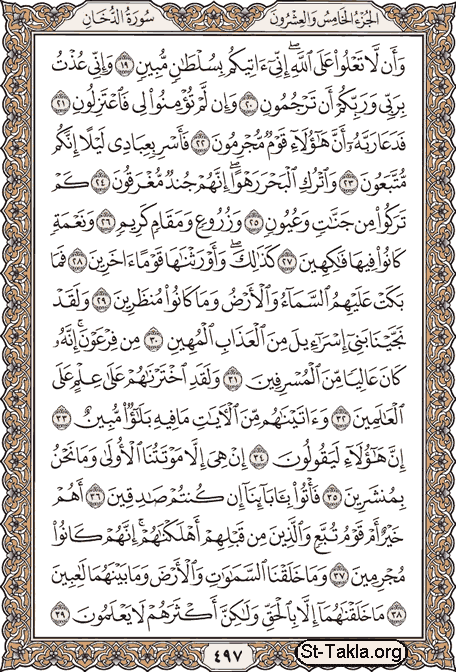 الجزء الخامس والعشرون
سورة الدخان
وَأَن لَّا تَعْلُوا۟ عَلَى ٱللَّهِ ۖ إِنِّىٓ ءَاتِيكُم بِسُلْطَـٰنٍ مُّبِينٍ ١٩ وَإِنِّى عُذْتُ
بِرَبِّى وَرَبِّكُمْ أَن تَرْجُمُونِ ٢٠ وَإِن لَّمْ تُؤْمِنُوا۟ لِى فَٱعْتَزِلُونِ ٢١
فَدَعَا رَبَّهُۥٓ أَنَّ هَـٰٓؤُلَآءِ قَوْمٌ مُّجْرِمُونَ ٢٢ فَأَسْرِ بِعِبَادِى لَيْلًا إِنَّكُم
مُّتَّبَعُونَ ٢٣ وَٱتْرُكِ ٱلْبَحْرَ رَهْوًا ۖ إِنَّهُمْ جُندٌ مُّغْرَقُونَ ٢٤ كَمْ
تَرَكُوا۟ مِن جَنَّـٰتٍ وَعُيُونٍ ٢٥ وَزُرُوعٍ وَمَقَامٍ كَرِيمٍ ٢٦ وَنَعْمَةٍ
كَانُوا۟ فِيهَا فَـٰكِهِينَ ٢٧ كَذَٰلِكَ ۖ وَأَوْرَثْنَـٰهَا قَوْمًا ءَاخَرِينَ ٢٨ فَمَا
بَكَتْ عَلَيْهِمُ ٱلسَّمَآءُ وَٱلْأَرْضُ وَمَا كَانُوا۟ مُنظَرِينَ ٢٩ وَلَقَدْ
نَجَّيْنَا بَنِىٓ إِسْرَٰٓءِيلَ مِنَ ٱلْعَذَابِ ٱلْمُهِينِ ٣٠ مِن فِرْعَوْنَ ۚ إِنَّهُۥ
كَانَ عَالِيًا مِّنَ ٱلْمُسْرِفِينَ ٣١ وَلَقَدِ ٱخْتَرْنَـٰهُمْ عَلَىٰ عِلْمٍ عَلَى
ٱلْعَـٰلَمِينَ ٣٢ وَءَاتَيْنَـٰهُم مِّنَ ٱلْـَٔايَـٰتِ مَا فِيهِ بَلَـٰٓؤٌا۟ مُّبِينٌ ٣٣
إِنَّ هَـٰٓؤُلَآءِ لَيَقُولُونَ ٣٤ إِنْ هِىَ إِلَّا مَوْتَتُنَا ٱلْأُولَىٰ وَمَا نَحْنُ
بِمُنشَرِينَ ٣٥ فَأْتُوا۟ بِـَٔابَآئِنَآ إِن كُنتُمْ صَـٰدِقِينَ ٣٦ أَهُمْ
خَيْرٌ أَمْ قَوْمُ تُبَّعٍ وَٱلَّذِينَ مِن قَبْلِهِمْ ۚ أَهْلَكْنَـٰهُمْ ۖ إِنَّهُمْ كَانُوا۟
مُجْرِمِينَ ٣٧ وَمَا خَلَقْنَا ٱلسَّمَـٰوَٰتِ وَٱلْأَرْضَ وَمَا بَيْنَهُمَا لَـٰعِبِينَ
٣٨ مَا خَلَقْنَـٰهُمَآ إِلَّا بِٱلْحَقِّ وَلَـٰكِنَّ أَكْثَرَهُمْ لَا يَعْلَمُونَ ٣٩
٤٩٧
St-Takla.org